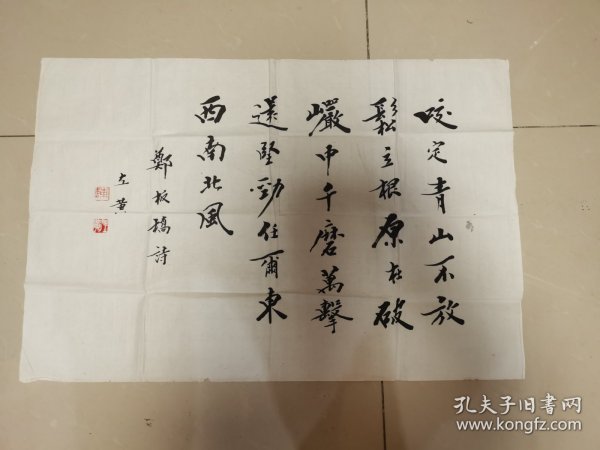 咬定青山不放
鬆立根原在破
巖中千磨萬擊
還堅勁任爾東
西南北風
鄭板橋詩
左黄
孔夫子旧书网
www.kongfz.com